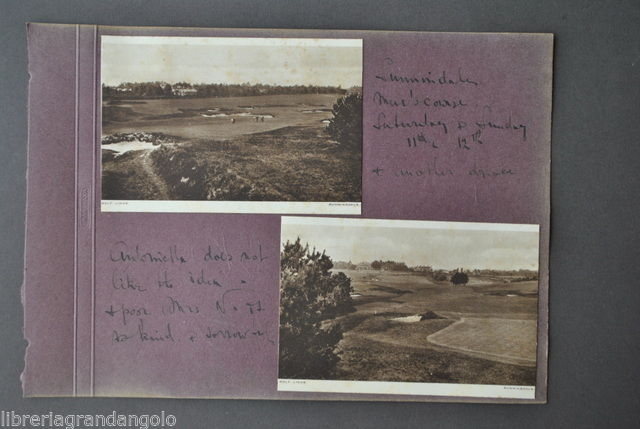 Sunningdale
Men's course
Saturday & Sunday
11th & 12th
& another
GOLF LINKS SUNNINGDALE
Antonietta does not
like the idea
& poor Mrs
so kind &
GOLF LINKS SUNNINGDALE
libreriagrandangolo